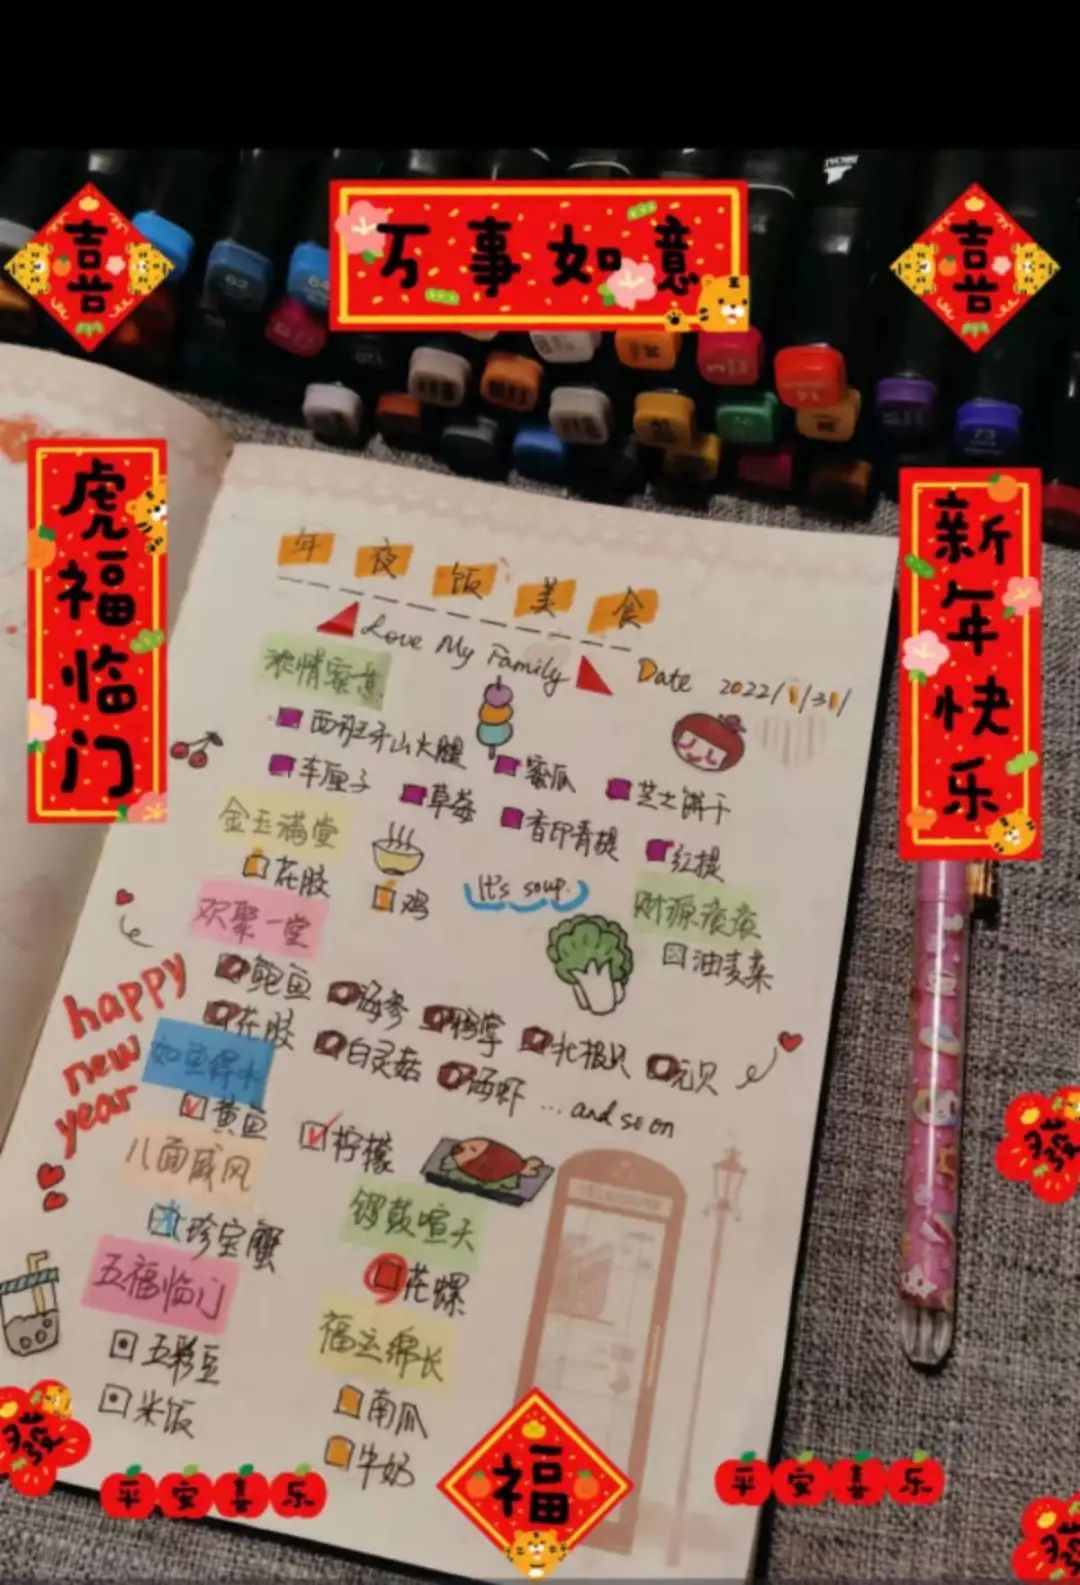 吉
万事如意
吉
虎福临门
新年快乐
年夜饭美食
Love My Family
Date 2022/1/31/
浓情蜜意
西班牙火腿
蜜瓜
芝士饼干
车厘子
草莓
香印青提
红提
金玉满堂
花胶
鸡
It's soup.
财源滚滚
油麦菜
欢聚一堂
鲍鱼
海参
鹅掌
北极贝
元贝
花胶
白灵菇
海虾
...and so on
happy
new
year
如鱼得水
黄鱼
柠檬
八面威风
珍宝蟹
锣鼓喧天
花螺
五福临门
五彩豆
米饭
福运绵长
南瓜
牛奶
發
發
平安喜乐
福
平安喜乐
發